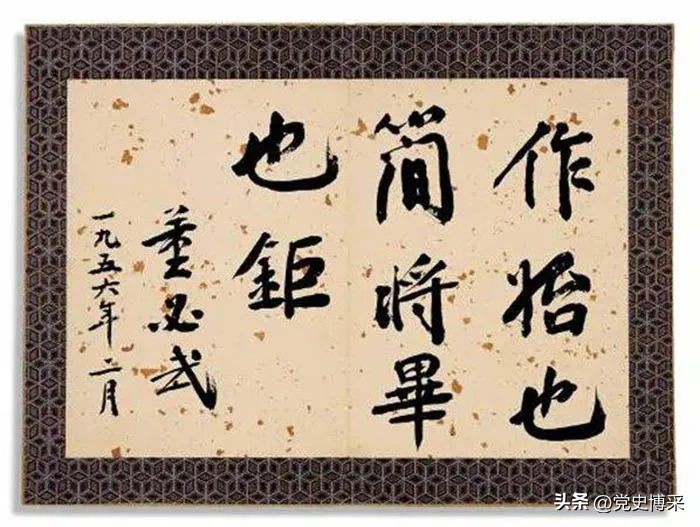 作始也
簡將畢
也鉅
董必武
一九五六年二月
头条 @党史博采